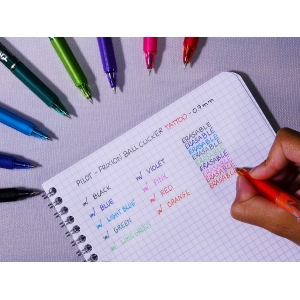 PILOT - FRIXION BALL CLICKER TATTOO - 0.7mm
BLACK
BLUE
LIGHT BLUE
GREEN
LIGHT GREEN
VIOLET
PINK
RED
ORANGE
ERASABLE
ERASABLE
ERASABLE
ERASABLE
ERASABLE
ERASABLE
ERASABLE
ERASABLE